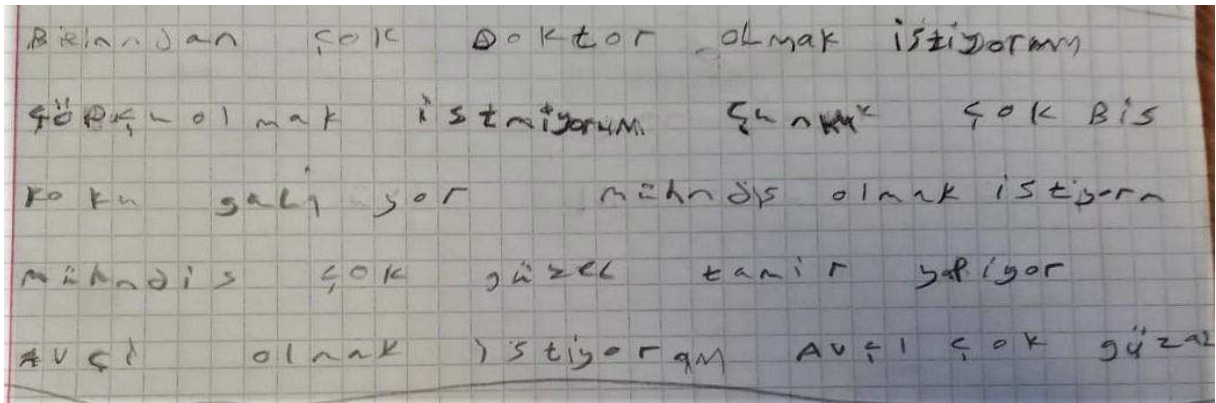 çok Doktor olmak istiyorum
çöpçu olmak istmiyorum çunku çok Bis
koku gali yor mühndis olmak istiyorm
mühndis çok güzel tamir yapiyor
Avçi olmak istiyorum Avçı çok güzal